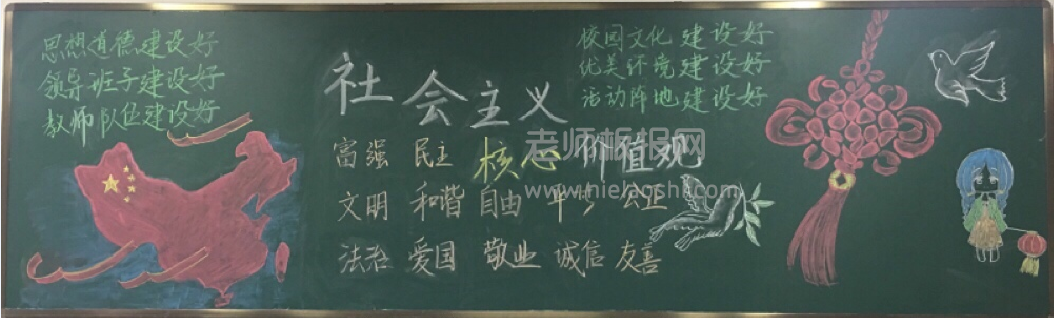 思想道德建设好
领导班子建设好
教师队伍建设好
社会主义
核心价值观
富强 民主
文明 和谐 自由 平等 公正
法治 爱国 敬业 诚信 友善
校园文化建设好
优美环境建设好
活动阵地建设好
老师板报网